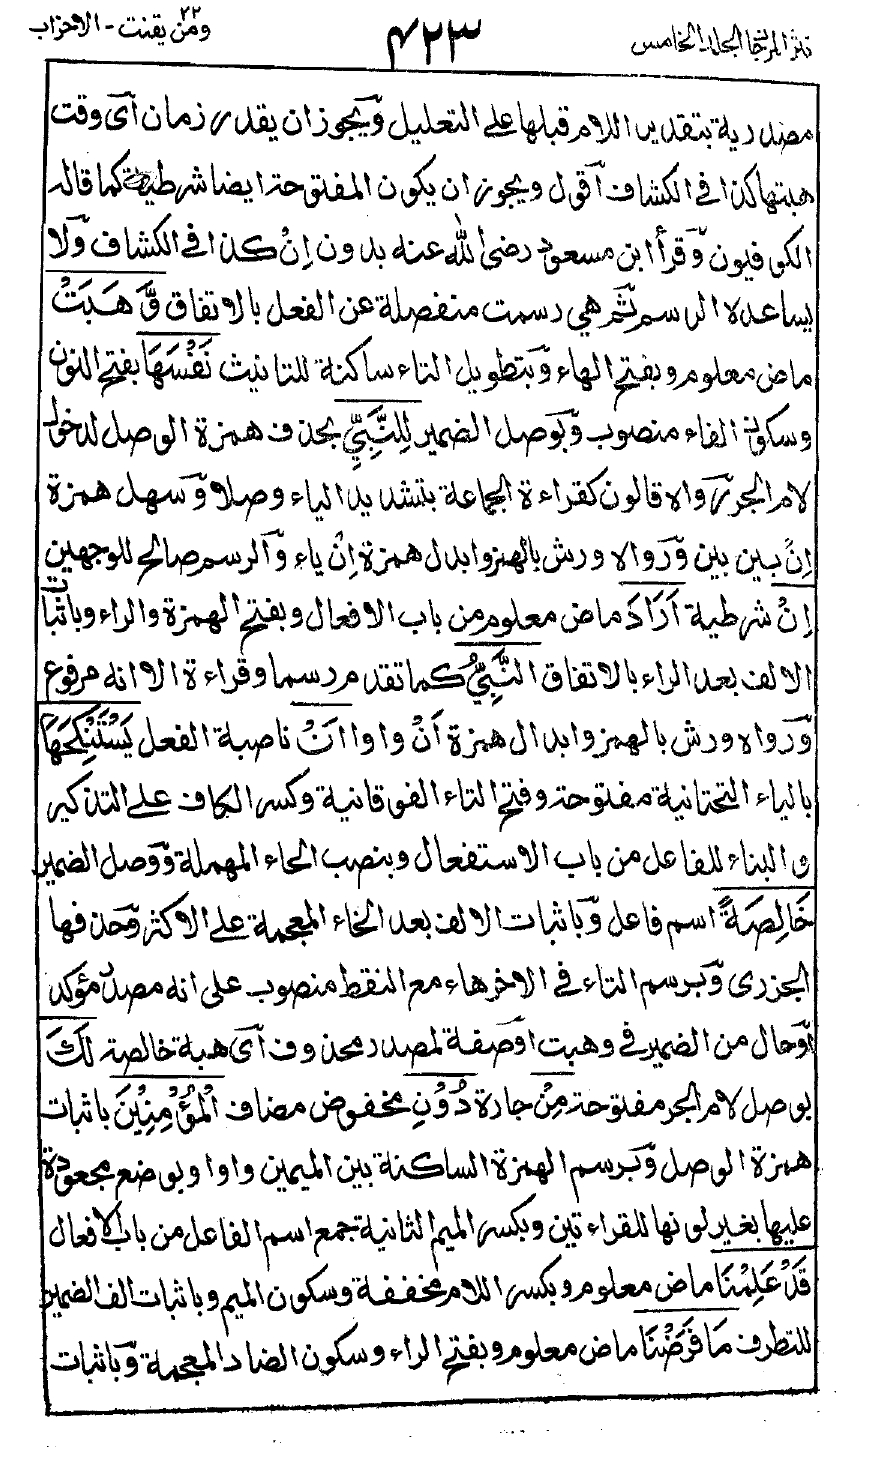 نثر المرجان المجلد الخامس ٤٢٣ ومن يقنت ٢٢ - الاحزاب
مصدرية بتقدير اللام قبلها على التعليل وَيجوز ان يقدر زمان اَى وقت
هبتها كذا فى الكشاف اَقول ويجوز ان يكون المفتوحة ايضا شرطية كما قاله
الكوفيون وَقرأ ابن مسعود رضى الله عنه بدون اِنْ كذا فى الكشاف وَلا
يساعده الرسم ثم هى رسمت منفصلة عن الفعل بالاتفاق وَّهَبَتْ
ماض معلوم وبفتح الهاء وَبتطويل التاء ساكنة للتانيث نَفْسَهَا بفتح النون
وسكون الفاء منصوب وَبوصل الضمير لِلنَّبِيِّ بحذف همزة الوصل لدخول
لام الجر رَواه قالون كقراءة الجماعة بتشديد الياء وصلا وَسهل همزة
اِنْ بين بين وَرواه ورش بالهمز وابدال همزة اِنْ ياء وَالرسم صالح للوجهين
اِنْ شرطية اَرَادَ ماض معلوم من باب الافعال وبفتح الهمزة والراء وباثبات
الالف بعد الراء بالاتفاق النَّبِيُّ كما تقدم رسما وقراءة الا انه مرفوع
وَرواه ورش بالهمز وابدال همزة اَنْ واوا اَنْ ناصبة الفعل يَسْتَنْكِحَهَا
بالياء التحتانية مفتوحة وفتح التاء الفوقانية وكسر الكاف على التذكير
والبناء للفاعل من باب الاستفعال وبنصب الحاء المهملة وَوصل الضمير
خَالِصَةً اسم فاعل وَباثبات الالف بعد الخاء المعجمة على الاكثر وَحذفها
الجزرى وَبرسم التاء فى الاخر هاء مع النقط منصوب على انه مصدر مؤكد
اَوحال من الضمير فى وهبت اَوصفة لمصدر محذوف اَى هبة خالصة لَكَ
بوصل لام الجر مفتوحة مِنْ جارة دُوْنِ مخفوض مضاف الْمُؤْمِنِيْنَ باثبات
همزة الوصل وَبرسم الهمزة الساكنة بين الميمين واوا وبوضع مجعودة
عليها بغير لونها للقراءتين وبكسر الميم الثانية جمع اسم الفاعل من باب الافعال
قَدْ عَلِمْنَا ماض معلوم وبكسر اللام مخففة وسكون الميم وباثبات الف الضمير
للتطرف مَا فَرَضْنَا ماض معلوم وبفتح الراء وسكون الضاد المعجمة وَباثبات